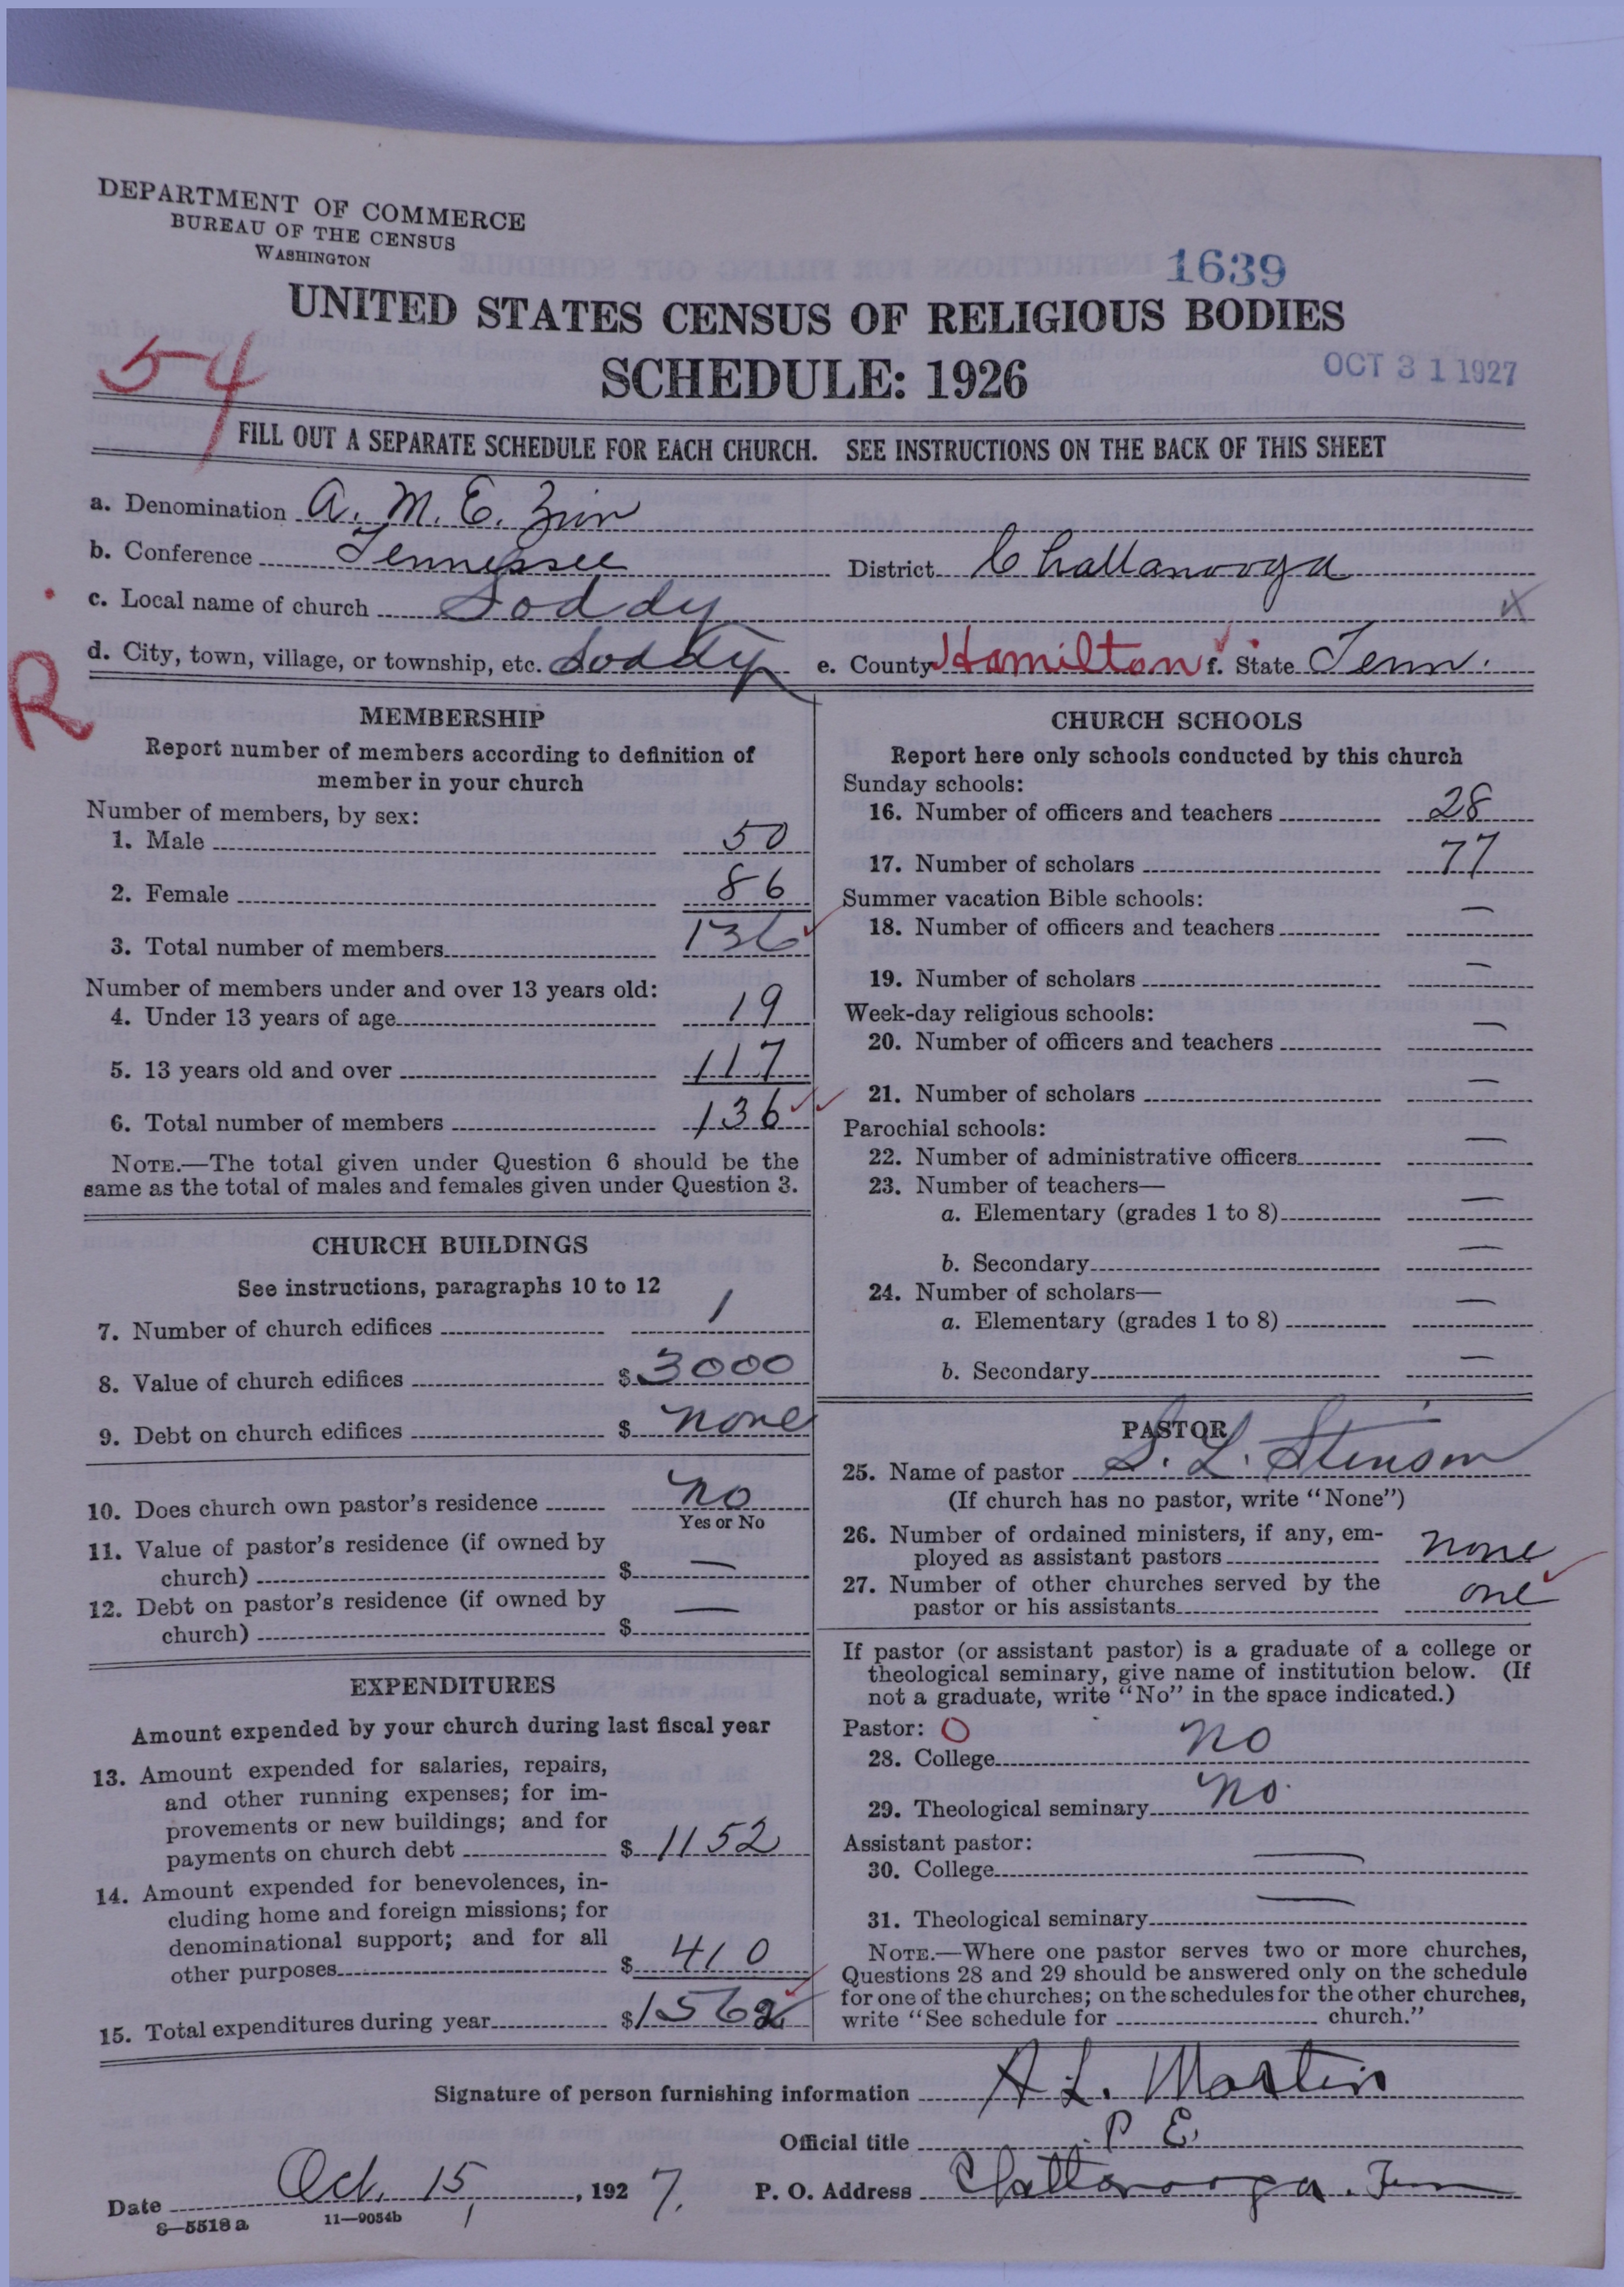 DEPARTMENT OF COMMERCE
BUREAU OF THE CENSUS
WASHINGTON
1639
UNITED STATES CENSUS OF RELIGIOUS BODIES
SCHEDULE: 1926
OCT 31 1927
54
FILL OUT A SEPARATE SCHEDULE FOR EACH CHURCH. SEE INSTRUCTIONS ON THE BACK OF THIS SHEET
a. Denomination A. M. E. Zion
b. Conference Tennessee District Chattanooga
c. Local name of church Soddy
d. City, town, village, or township, etc. Soddy e. County Hamilton f. State Tenn.
R
MEMBERSHIP
Report number of members according to definition of
member in your church
Number of members, by sex:
1. Male 50
2. Female 86
3. Total number of members 136
Number of members under and over 13 years old:
4. Under 13 years of age 19
5. 13 years old and over 117
6. Total number of members 136
NOTE.—The total given under Question 6 should be the
same as the total of males and females given under Question 3.
CHURCH BUILDINGS
See instructions, paragraphs 10 to 12
7. Number of church edifices 1
8. Value of church edifices $ 3000
9. Debt on church edifices $ none
10. Does church own pastor's residence no
Yes or No
11. Value of pastor's residence (if owned by
church) $ —
12. Debt on pastor's residence (if owned by
church) $ —
EXPENDITURES
Amount expended by your church during last fiscal year
13. Amount expended for salaries, repairs,
and other running expenses; for im-
provements or new buildings; and for
payments on church debt $ 1152
14. Amount expended for benevolences, in-
cluding home and foreign missions; for
denominational support; and for all
other purposes $ 410
15. Total expenditures during year $ 1562
CHURCH SCHOOLS
Report here only schools conducted by this church
Sunday schools:
16. Number of officers and teachers 28
17. Number of scholars 77
Summer vacation Bible schools:
18. Number of officers and teachers —
19. Number of scholars —
Week-day religious schools:
20. Number of officers and teachers —
21. Number of scholars —
Parochial schools:
22. Number of administrative officers —
23. Number of teachers—
a. Elementary (grades 1 to 8) —
b. Secondary —
24. Number of scholars—
a. Elementary (grades 1 to 8) —
b. Secondary —
PASTOR
25. Name of pastor S. L. Stinson
(If church has no pastor, write "None")
26. Number of ordained ministers, if any, em-
ployed as assistant pastors none
27. Number of other churches served by the
pastor or his assistants one
If pastor (or assistant pastor) is a graduate of a college or
theological seminary, give name of institution below. (If
not a graduate, write "No" in the space indicated.)
Pastor: O
28. College no
29. Theological seminary no.
Assistant pastor:
30. College —
31. Theological seminary —
NOTE.—Where one pastor serves two or more churches,
Questions 28 and 29 should be answered only on the schedule
for one of the churches; on the schedules for the other churches,
write "See schedule for church."
Signature of person furnishing information A L. Martin
Official title P. E.
Date Oct. 15, 1927. P. O. Address Chattanooga. Tenn
8—5518 a 11—9054b